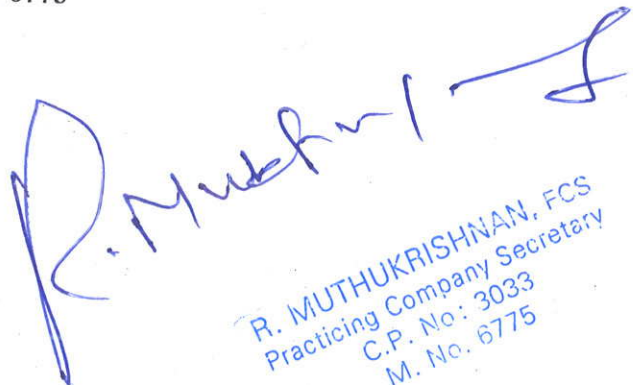 R. Muthukrishnan
R. MUTHUKRISHNAN, FCS
Practicing Company Secretary
C.P. No: 3033
M. No. 6775